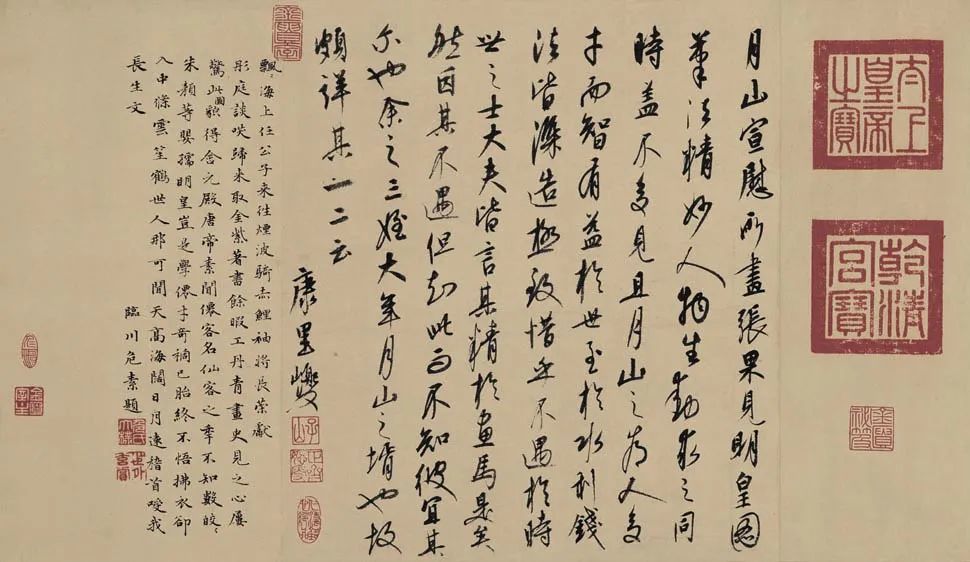 太上皇帝之寶
乾清宮寶
月山宣慰所畫張果見明皇圖
筆法精妙人物生動求之同
時蓋不多見且月山之為人多
才而智有益於世至於水利錢
法皆深造極致惜乎不遇於時
世之士大夫皆言其精於畫馬是矣
然因其不遇但知此而不知彼宜其
尒也余之三姪大年月山之壻也故
頗詳其一二云
康里巎
飄〻海上任公子來往煙波騎赤鯉袖將長策獻
彤庭談咲歸來取金紫著書餘暇工丹青畫史見之心屢
驚此圖貌得含元殿唐帝素聞僊客名仙客之年不知數皎〻
朱顏等嬰孺明皇豈是學僊才奇禍已胎終不悟拂衣卻
入中條雲笙鶴世人那可聞天高海闊日月速稽首我
長生文
臨川危素題